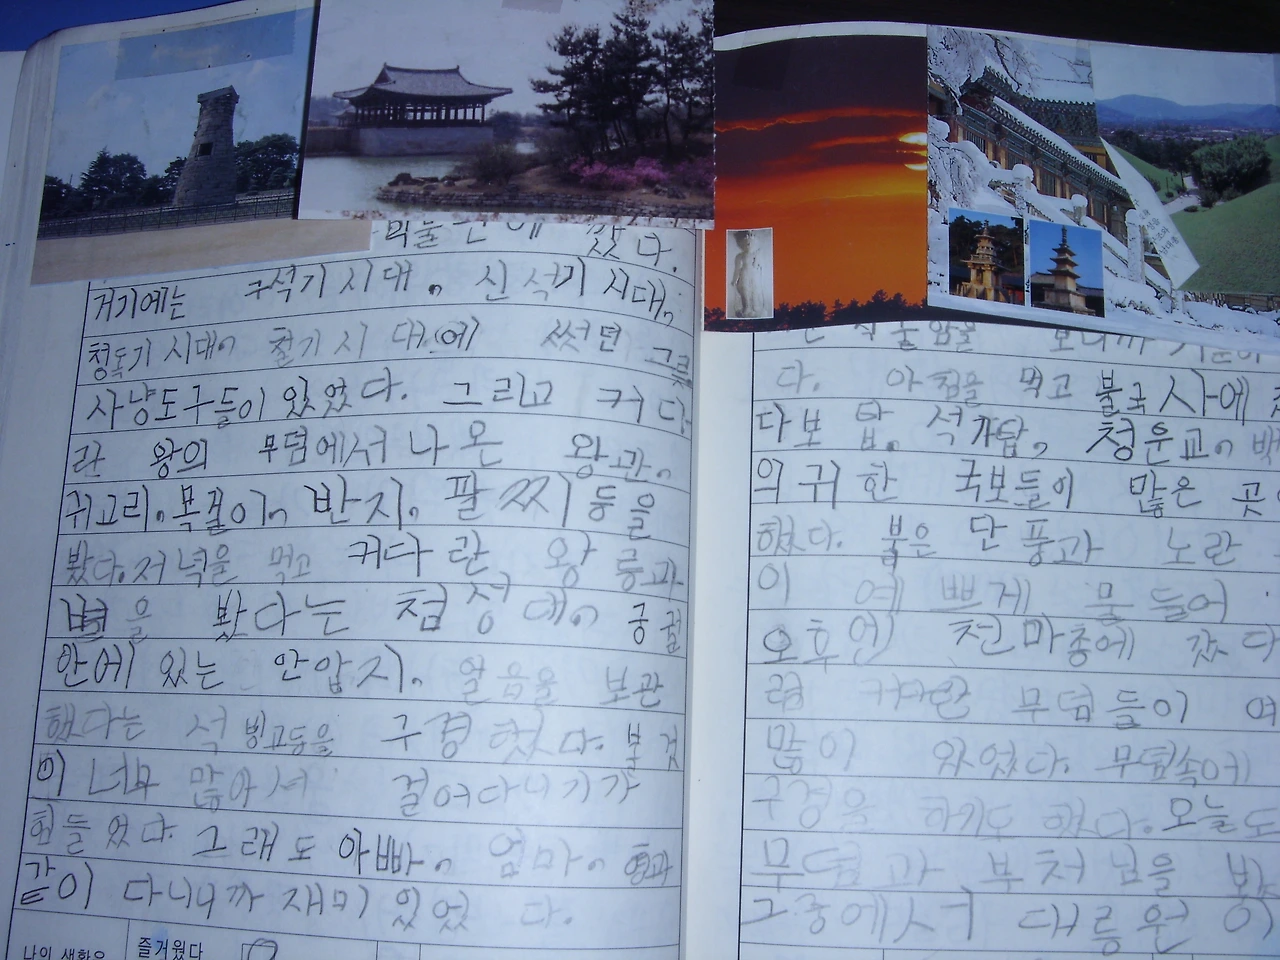 박물관에 갔다.
거기에는 구석기시대, 신석기시대,
청동기시대, 철기시대에 썼던 그릇
사냥도구들이 있었다. 그리고 커다
란 왕의 무덤에서 나온 왕관,
귀고리, 목걸이, 반지, 팔찌 등을
봤다. 저녁을 먹고 커다란 왕릉과
별을 봤다는 첨성대, 궁궐
안에 있는 안압지, 얼음을 보관
했다는 석빙고등을 구경했다. 볼것
이 너무 많아서 걸어다니기가
힘들었다. 그래도 아빠, 엄마, 형과
같이 다니니까 재미있었다.
나의 생활은 즐거웠다
석굴암을 보니까 기분이
다. 아침을 먹고 불국사에
다보탑, 석가탑, 청운교,
의 귀한 국보들이 많은 곳
했다. 붉은 단풍과 노란
이 예쁘게 물들어
오후엔 천마총에 갔다
럼 커다란 무덤들이 여
많이 있었다. 무덤속에
구경을 하기도 했다. 오늘도
무덤과 부처님을
그중에서 대릉원이